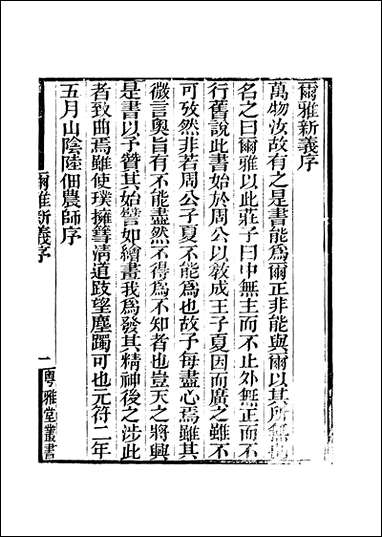 爾雅新義序
萬物汝故有之是書能為爾正非能與爾以其所無也
名之曰爾雅以此莊子曰中無主而不止外無正而不
行舊說此書始於周公以教成王子夏因而廣之雖不
可攷然非若周公子夏不能為也故予每盡心焉雖其
微言奧旨有不能盡然不得為不知者也豈天之將興
是書以予贊其始譬如繪畫我為發其精神後之涉此
者致曲焉雖使璞擁篲清道跂望塵躅可也元符二年
五月山陰陸佃農師序
爾雅新義序
一
粵雅堂叢書